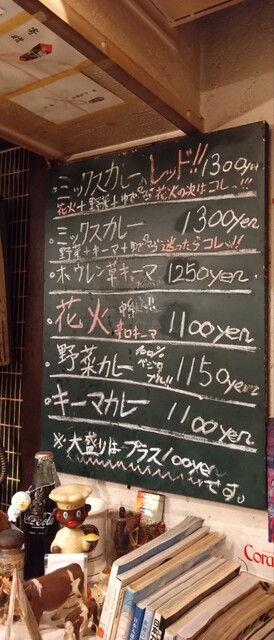 ミックスカレーレッド!! 1300yen
花火+野菜+ゆでたまご 花火の次はコレ!!
ミックスカレー 1300yen
野菜+キーマ+ゆでたまご 迷ったらコレ!!
ホウレン草キーマ 1250yen
花火 辛口キーマ 1100yen
野菜カレー 100% ベジタブル!! 1150yen
キーマカレー 1100yen
※大盛りはプラス100yen
です。
Coca-Cola
Cora